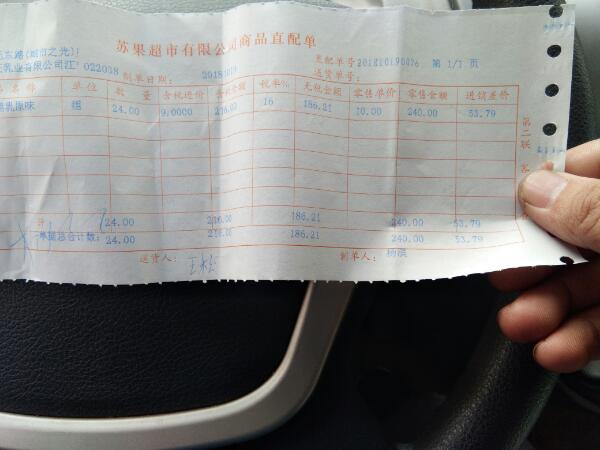 苏果超市有限公司商品直配单
东路(城市之光)
直配单号201810190076 第1/1页
乳业有限公司江 022038 制单日期: 20181019 送货单号:
名称 单位 数量 含税进价 含税金额 税率% 无税金额 零售单价 零售金额 进销差价
乳原味 组 24.00 9.0000 216.00 16 186.21 10.00 240.00 53.79
24.00 216.00 186.21 240.00 53.79
单据总合计数: 24.00 216.00 186.21 240.00 53.79
送货人: 制单人: 杨滨
第二联